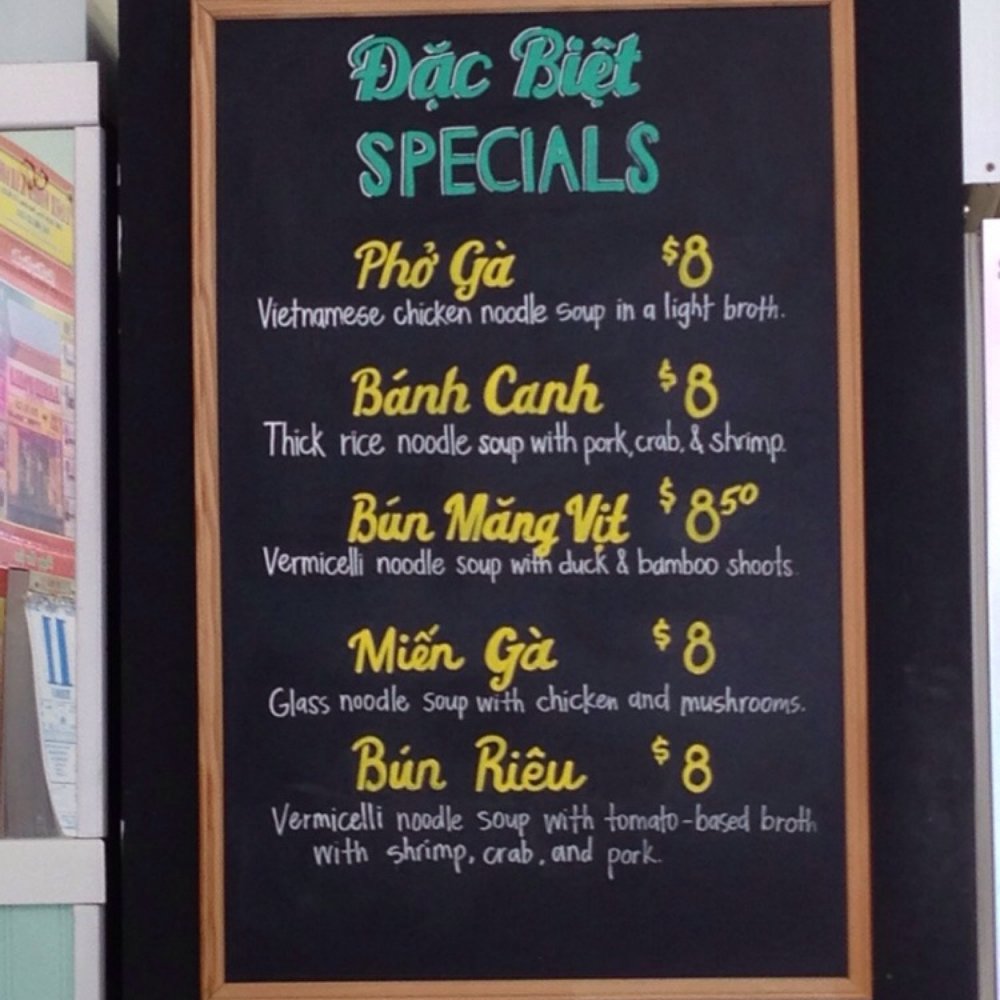 Đặc Biệt
SPECIALS
Phở Gà $8
Vietnamese chicken noodle soup in a light broth.
Bánh Canh $8
Thick rice noodle soup with pork, crab, & shrimp.
Bún Măng Vịt $850
Vermicelli noodle soup with duck & bamboo shoots.
Miến Gà $8
Glass noodle soup with chicken and mushrooms.
Bún Riêu $8
Vermicelli noodle soup with tomato-based broth
with shrimp, crab, and pork.
11